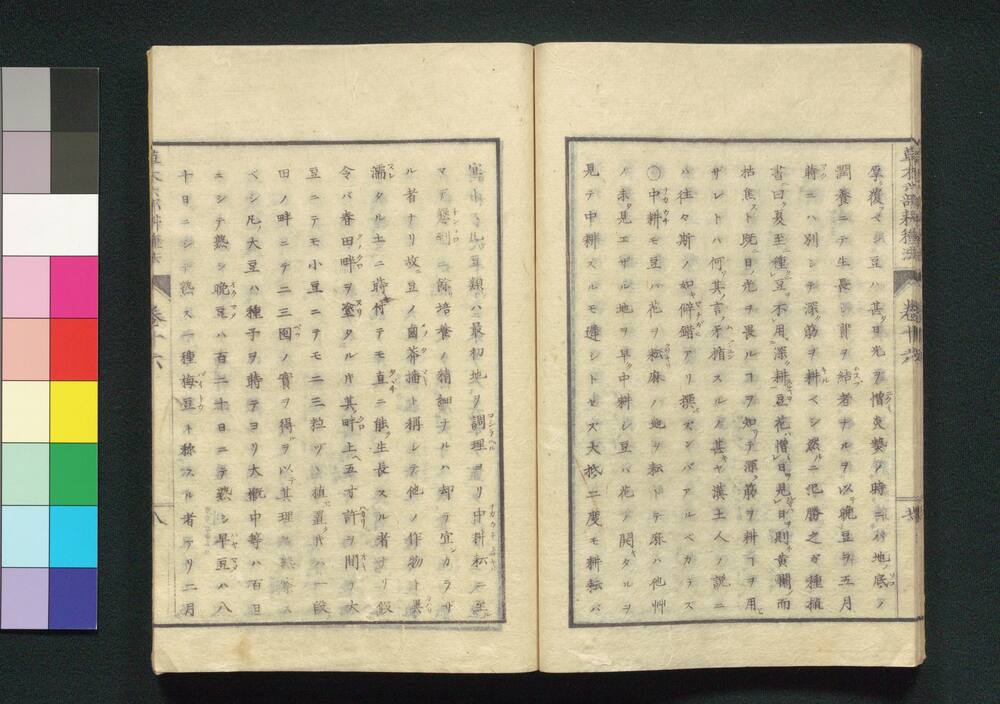 孚覆ベシ豆ハ甚ダ日光ヲ憎炎熱ノ時ニハ地底ノ
潤養ニテ生長シ實ヲ結者ナルヲ以テ晩豆ヲ五月
時ニハ別シテ深ク筋ヲ耕ベシ然ルニ氾勝之ガ種植
書曰夏至種豆不用深耕豆花憎日見日則黄爛而
枯焦スト既日ノ光ヲ畏ルコヲ知テ深ク筋ヲ耕コヲ用
ザレトハ何ゾ其ノ言ノ矛楯スルノ甚ヤ漢土人ノ説ニ
ハ往々斯ノ如キ僻錯アリ撰ズンバアルベカラズ
〇中耕モ豆ハ花ヲ耘麻ノ地ヲ耘ト云テ麻ハ他艸
ノ未ダ見エザル地ヲ早ク中耕シ豆ハ花ノ開キタルヲ
見テ中耕スルモ遲シトセズ大抵二度モ耕耘バ
豆類ハ最初地ヲ調理ヨリ中耕耘ニ至
マデ懇到ニ培養ノ精細ナルハ却テ宜カラザ
ル者ナリ故ニ豆ノ畝播ト稱シテ他ノ作物ト異
濡タル土ニ蒔付テモ直ニ能ク生長スル者ナリ假
令バ春田畔ヲ塗タル片其ノ畔上ヘ五寸許ヲ間ヲ大
豆ニテモ小豆ニテモ二三粒ヅヽ植置ク片ハ一段
田ノ畔ニテ二三囤ノ實ヲ得ルヲ以テ其理ヲ
ベシ凡ソ大豆ハ種子ヲ蒔テヨリ大概中等ハ百日
ニシテ熟シ晩豆ハ百二十日ニテ熟シ早豆ハ八
十日ニシテ熟ス一種梅豆ト称スル者アリ二月
巻十六
八